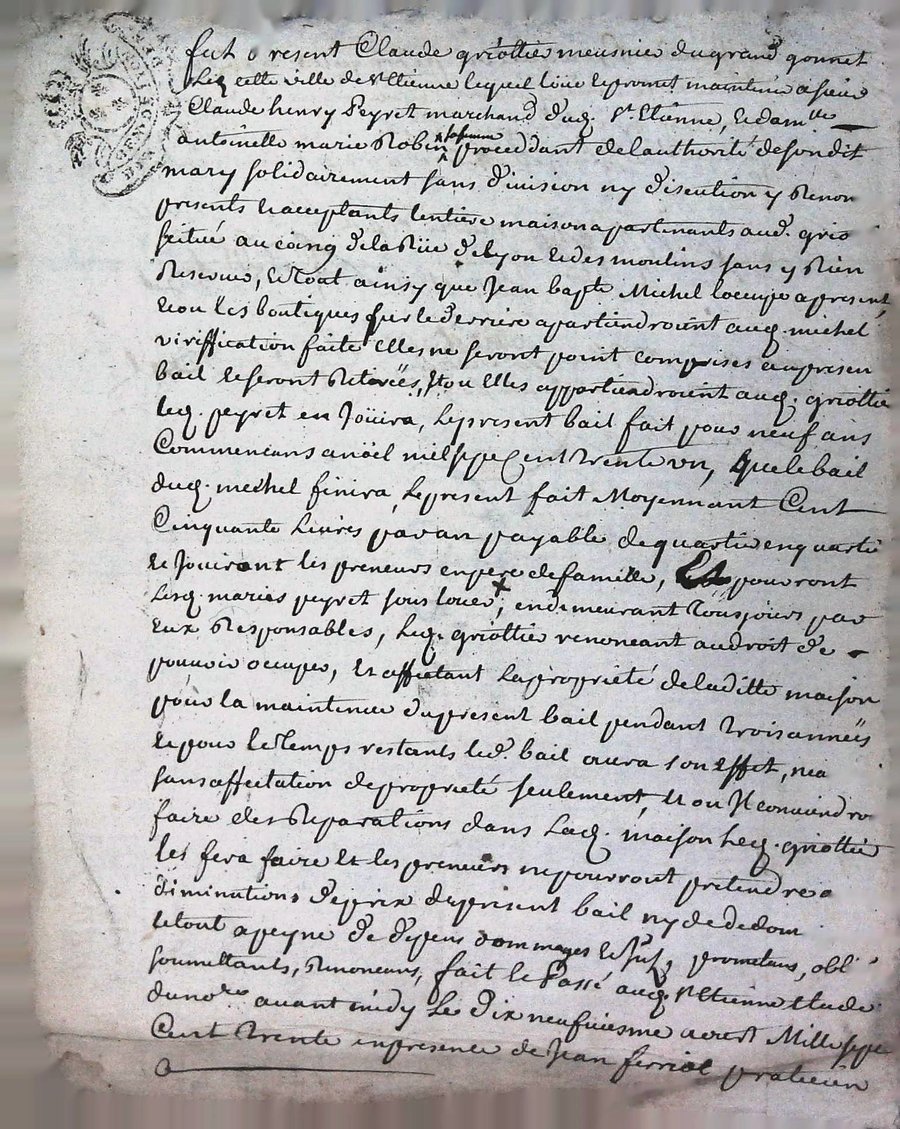 fut present Claude griottie meusnie du grand gonnet
de cette ville de st Etienne lequel loüe et promet maintenir a sieur
Claude henry Peyret marchand dud. St. Etienne, et dam.lle
antoinette marie Robin sa femme proceddant de lauthorité de sondit
mary solidairement sans division ny discution y Renon
presents et acceptants lentiere maison apartenants aud. grio
scitué au coing de la Rüe de lyon et des moulins sans y Rien
Reserver, le tout ainsy que Jean bapt.e Michel loccupe apresent,
et ou les boutiques sur le derriere apartiendroient aud. michel
viriffication faite elles ne seront point comprises au presen
bail et seront Retirées, et ou elles appartiendroient aud. griottie
led. peyret en Joüira, le present bail fait pour neuf ans
Commencans a noël mil sept Cent trente un, que le bail
dud. michel finira, le present fait Moyennant Cent
Cinquante Livres par an payable de quartie en quartie
et Jouiront les preneurs en pere de famille, et pourront
lesd. mariés peyret sous loüer, en demeurant tousjours par
eux Responsables, led. griottie renoncant au droit de
pouvoir occuper, et affectant la proprieté de laditte maison
pour la maintenüe du present bail pendant trois années
et pour le temps restants led. bail aura son effet, mia
sans affectation de proprieté seulement, et ou Il conviendro
faire des Reparations dans lad. maison led. griottie
les fera faire et les preneurs ne pourront pretendre a
diminutions de prix du present bail ny de dedom
le tout a peyne de depens dommages et Jnts, promettans, obli
soumettants, Renoncans, fait et Passé aud. St Etienne etude
du no.re avant midy le dix neufviesme aoust Mille sept
Cent trente en presence de Jean ferriol praticien